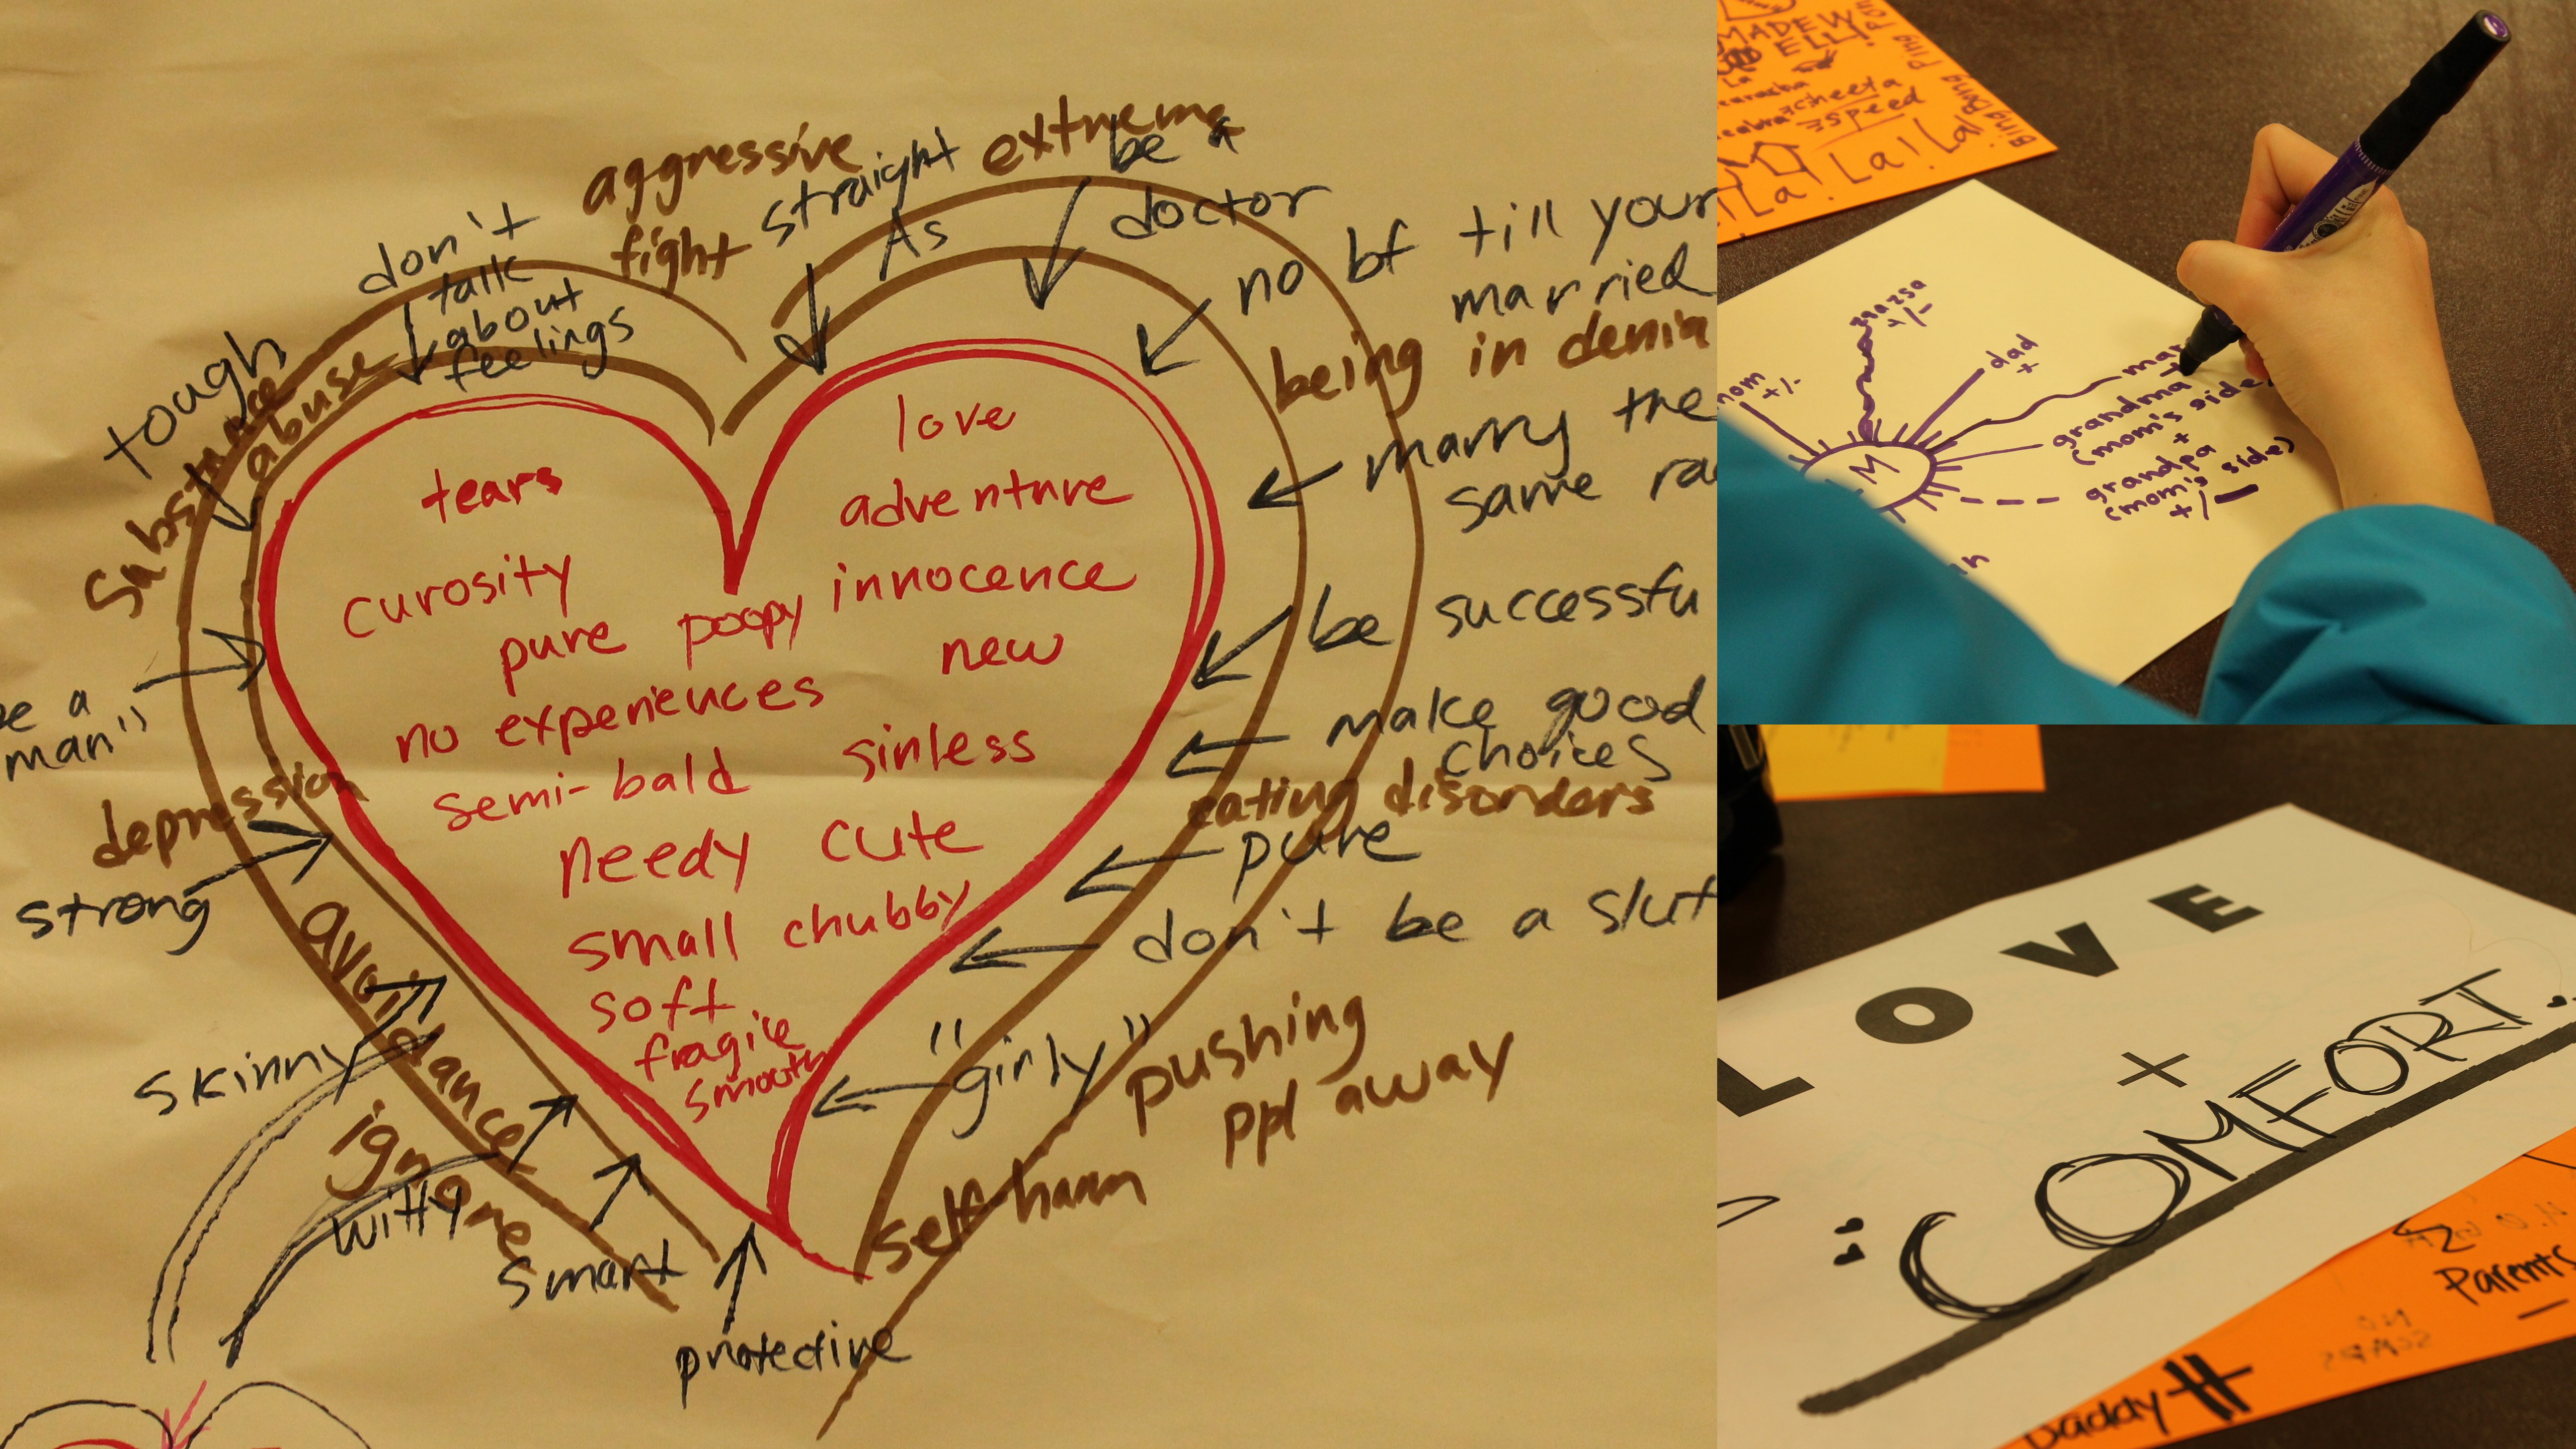 aggressive
fight
straight
As
extreme
be a
doctor
don't
talk
about
feelings
tough
substance
abuse
no bf till your
married
being in denia
marry the
same ra
be successfu
make good
choices
eating disorders
pure
don't be a slut
"girly"
pushing
ppl away
self-harm
protective
smart
witty
ignore
skinny
avoidance
strong
depression
be a
man"
tears
love
adventure
curosity
innocence
pure poopy
new
no experiences
semi-bald
sinless
needy cute
small chubby
soft
fragile
smooth
MADEW
ELL!
La
cheeta
speed
La! La! La!
Bing Bong Ping
mom
+/-
+/-
dad
+
M
mar
+
grandma
(mom's side)
+
grandpa
(mom's side)
+/-
LOVE
+
"COMFORT."
Parents
-
NO
SCARS
Daddy #